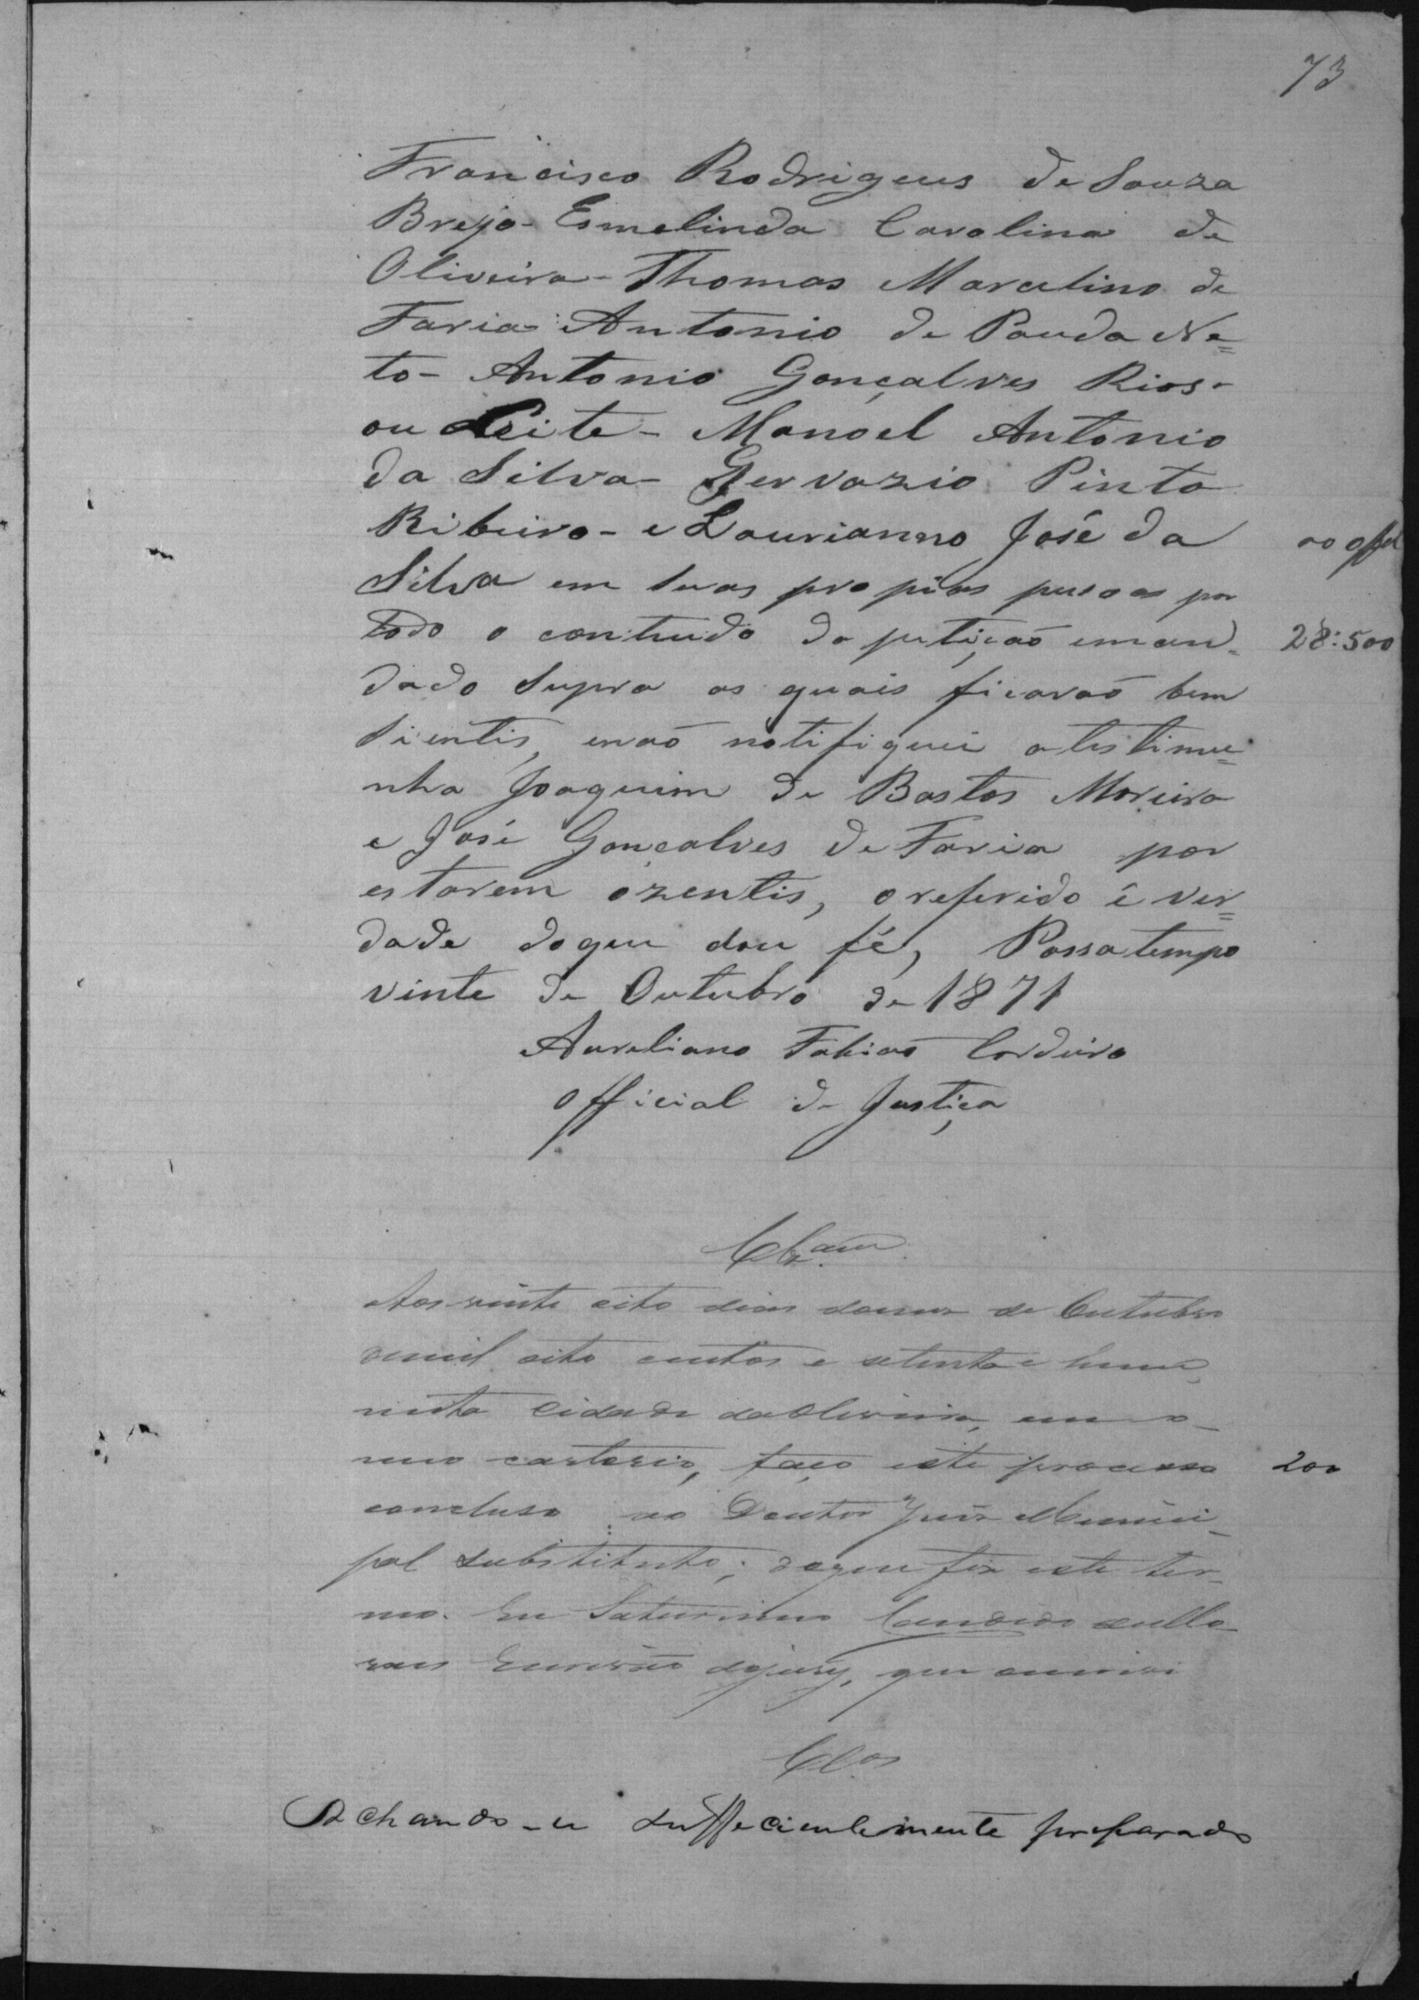 73
Francisco Rodrigeus de Souza
Brejo - Esmelinda Carolina de
Oliveira - Thomas Marcelino de
Faria - Antonio de Pauda Ne=
to - Antonio Gonçalves Rios -
ou Leite - Manoel Antonio
da Silva - Gervazio Pinto
Ribeiro - e Laurianno José da
ao offal
Silva em suas propias pusoas por
todo o contiudo da petiçaõ eman=
28:500
dado supra os quais ficaraõ bem
sientis, enaõ notifiquei atestimu=
nha Joaquim de Bastos Moreira
e José Gonçalves de Faria por
estarem ozentis, o referido é ver=
dade doque dou fé, Passatempo
vinte de Outubro de 1871
Aureliano Fabiaõ Cordeiro
Official de Justiça
Clzam
Aos vinte oito dias domes de Outubro
demil oito centos e setenta e hum,
nesta Cidade da Oliveira, em o
meo cartorio, faço este processo
200
concluso ao Doutor Juiz Munici-
pal substituto; doque fiz este ter-
mo. Eu Saturnino Candido de Mo-
raes Escrivão dojury, que escrevi
Clos
Achando-se sufficientemente preparado